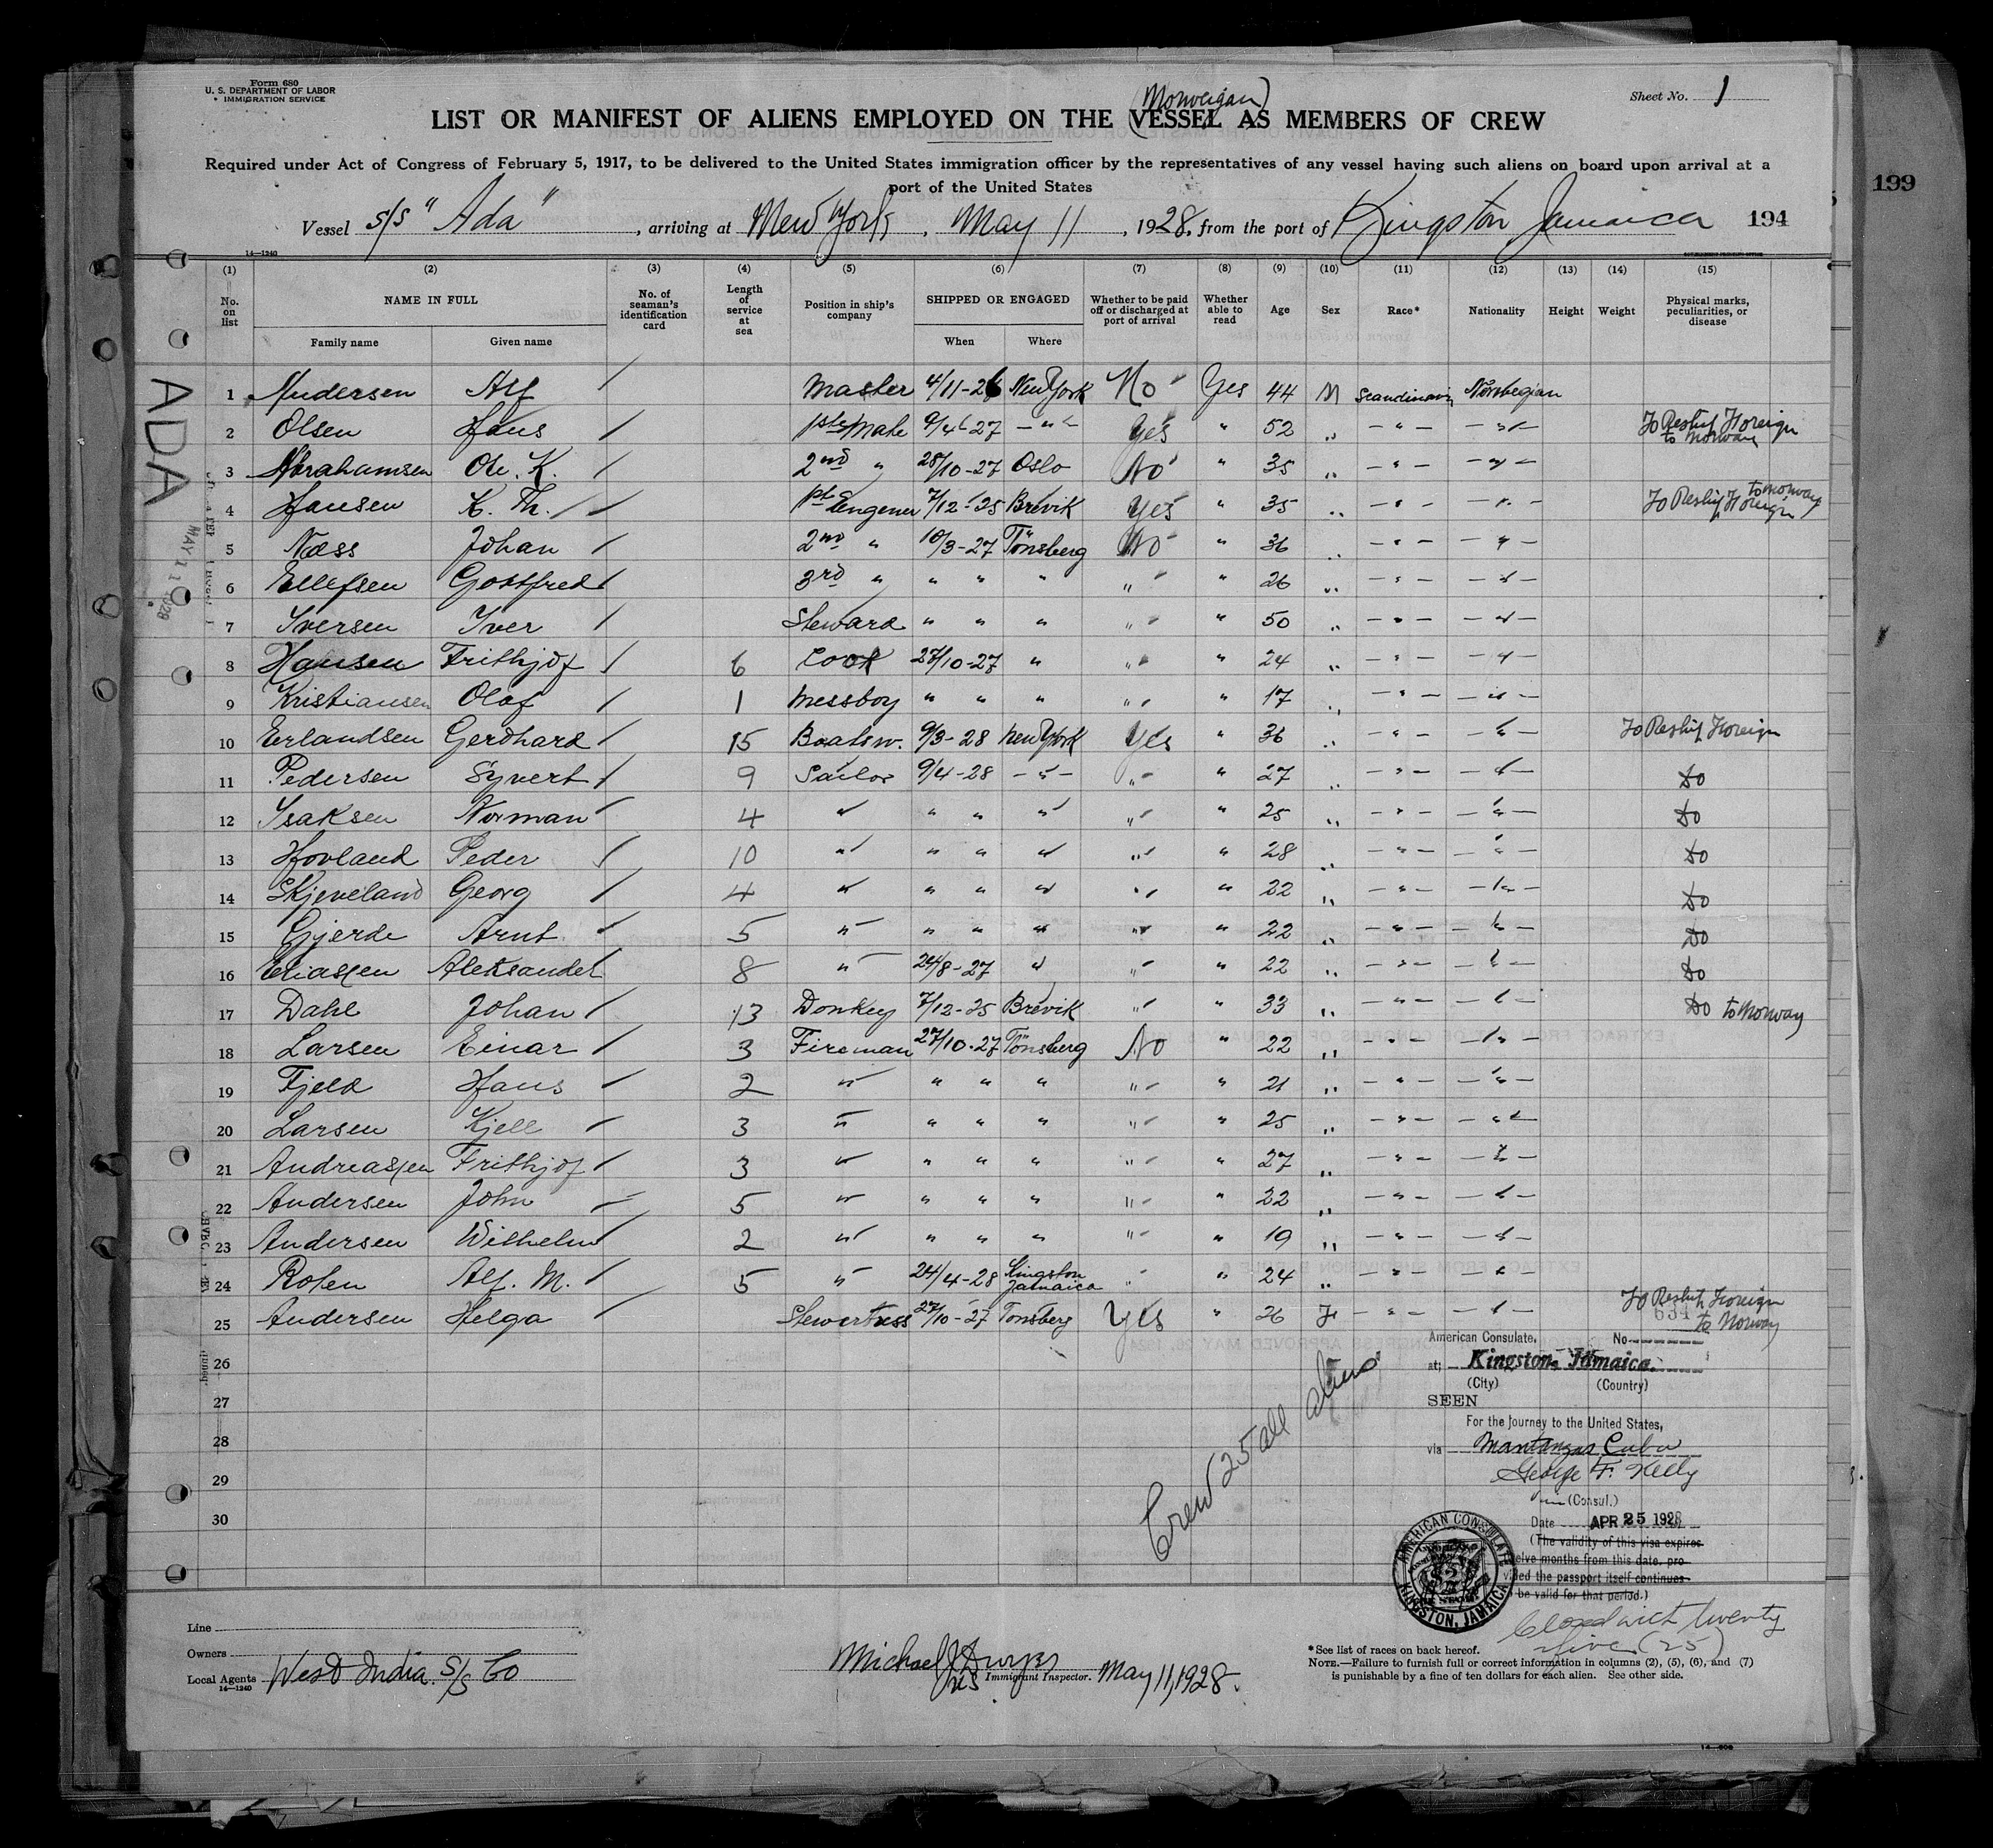 Form 680
U. S. DEPARTMENT OF LABOR
IMMIGRATION SERVICE
Sheet No. 1
(Norweigan)
LIST OR MANIFEST OF ALIENS EMPLOYED ON THE VESSEL AS MEMBERS OF CREW
Required under Act of Congress of February 5, 1917, to be delivered to the United States immigration officer by the representatives of any vessel having such aliens on board upon arrival at a
port of the United States
199
Vessel S/S "Ada", arriving at New York, May 11, 1928, from the port of Kingston Jamaica 194
14—1240
(1) (2) (3) (4) (5) (6) (7) (8) (9) (10) (11) (12) (13) (14) (15)
No. on list
NAME IN FULL
Family name Given name
No. of seaman's identification card
Length of service at sea
Position in ship's company
SHIPPED OR ENGAGED
When Where
Whether to be paid off or discharged at port of arrival
Whether able to read
Age
Sex
Race*
Nationality
Height
Weight
Physical marks, peculiarities, or disease
ADA
MAY 11 1928
1 Andersen Alf Master 4/11-26 New York No Yes 44 M Scandinavis Norwegian
2 Olsen Hans 1st Mate 9/4-27 - " - Yes " 52 " - " - - " - To Reship Foreign to Norway
3 Abrahamsen Ole. K. 2nd " 28/10-27 Oslo No " 35 " - " - - " -
4 Hansen K. Th. 1st Engener 7/12-25 Brevik Yes " 35 " - " - - " - To Reship Foreign to Norway
5 Næss Johan 2nd " 10/3-27 Tönsberg No " 36 " - " - - " -
6 Ellefsen Gottfred 3rd " " " " " " 26 " - " - - " -
7 Iversen Iver Steward " " " " " 50 " - " - - " -
8 Hansen Frithjof 6 Cook 27/10-27 " " " 24 " - " - - " -
9 Kristiansen Olaf 1 Messboy " " " " " 17 " - " - - " -
10 Erlandsen Gerdhard 15 Boatsw. 9/3-28 New York Yes " 36 " - " - - " - To Reship Foreign
11 Pedersen Syvert 9 Sailor 9/4-28 - " - " " 27 " - " - - " - Do
12 Isaksen Norman 4 " " " " " " 25 " - " - - " - Do
13 Hovland Peder 10 " " " " " " 28 " - " - - " - Do
14 Skjeveland Georg 4 " " " " " " 22 " - " - - " - Do
15 Gjerde Arnt 5 " " " " " " 22 " - " - - " - Do
16 Eliassen Aleksander 8 " 24/8-27 " " " 22 " - " - - " - Do
17 Dahl Johan 13 Donkey 7/12-25 Brevik " " 33 " - " - - " - Do to Norway
18 Larsen Einar 3 Fireman 27/10-27 Tönsberg No " 22 " - " - - " -
19 Fjeld Hans 2 " " " " " " 21 " - " - - " -
20 Larsen Kjell 3 " " " " " " 25 " - " - - " -
21 Andreassen Frithjof 3 " " " " " " 27 " - " - - " -
22 Andersen John 5 " " " " " " 22 " - " - - " -
23 Andersen Wilhelm 2 " " " " " " 19 " - " - - " -
24 Alf. M. 5 " 24/4-28 Kingston Jamaica " " 24 " - " - - " -
25 Andersen Helga Stewertress 27/10-27 Tonsberg Yes " 26 F - " - - " - To Reship Foreign to Norway
26
27
28
29
30
Crew 25 all aliens
American Consulate, No 634
at; Kingston, Jamaica.
(City) (Country)
SEEN
For the Journey to the United States,
via Mantanzas Cuba
George F. Kelly
Vice (Consul.)
Date APR 25 1928
(The validity of this visa expires
twelve months from this date, pro-
vided the passport itself continues
to be valid for that period.)
AMERICAN CONSULATE
KINGSTON, JAMAICA
Closed with twenty
five (25)
Line
Owners
Local Agents West India S/S Co
14—1240
Michael J. Dwyer
US Immigrant Inspector. May 11, 1928.
*See list of races on back hereof.
NOTE.—Failure to furnish full or correct information in columns (2), (5), (6), and (7)
is punishable by a fine of ten dollars for each alien. See other side.